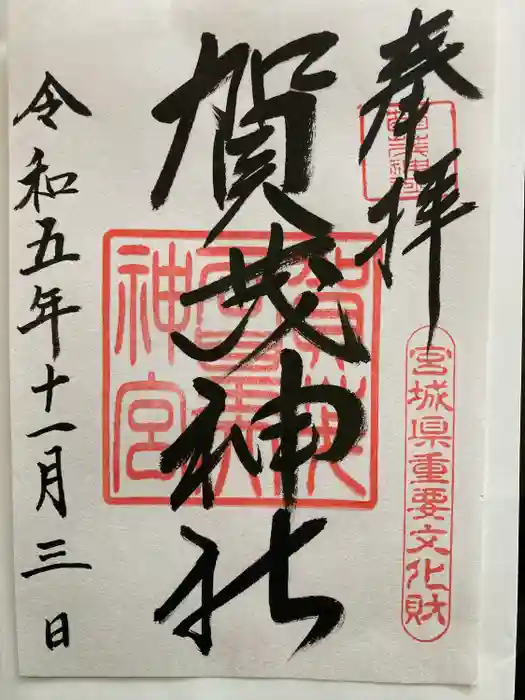 奉拝
宮城県重要文化財
賀茂神社
神宮
令和五年十一月三日